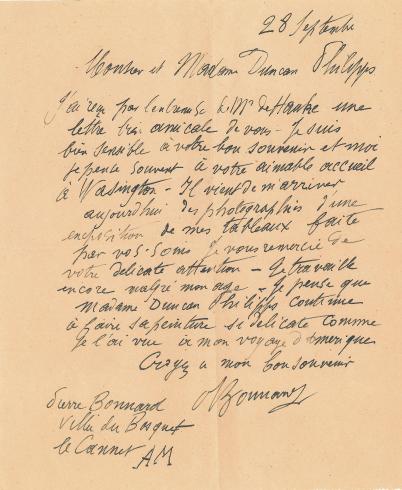 28 Septembre
Monsieur et Madame Duncan Philipps
J'ai reçu par l'entremise de Mr de Hauke une
lettre très amicale de vous - Je suis
bien sensible à votre bon souvenir et moi
je pense souvent à votre aimable accueil
à Wasington - Il vient de m'arriver
aujourd'hui des photographies d'une
exposition de mes tableaux faite
par vos soins Je vous remercie de
votre délicate attention - Je travaille
encore malgré mon age - Je pense que
Madame Duncan Philipps continue
à faire sa peinture si délicate comme
je l'ai vue à mon voyage d'Amérique
Croyez a mon bon souvenir
PBonnard
Pierre Bonnard
Villa du Bosquet
le Cannet
AM